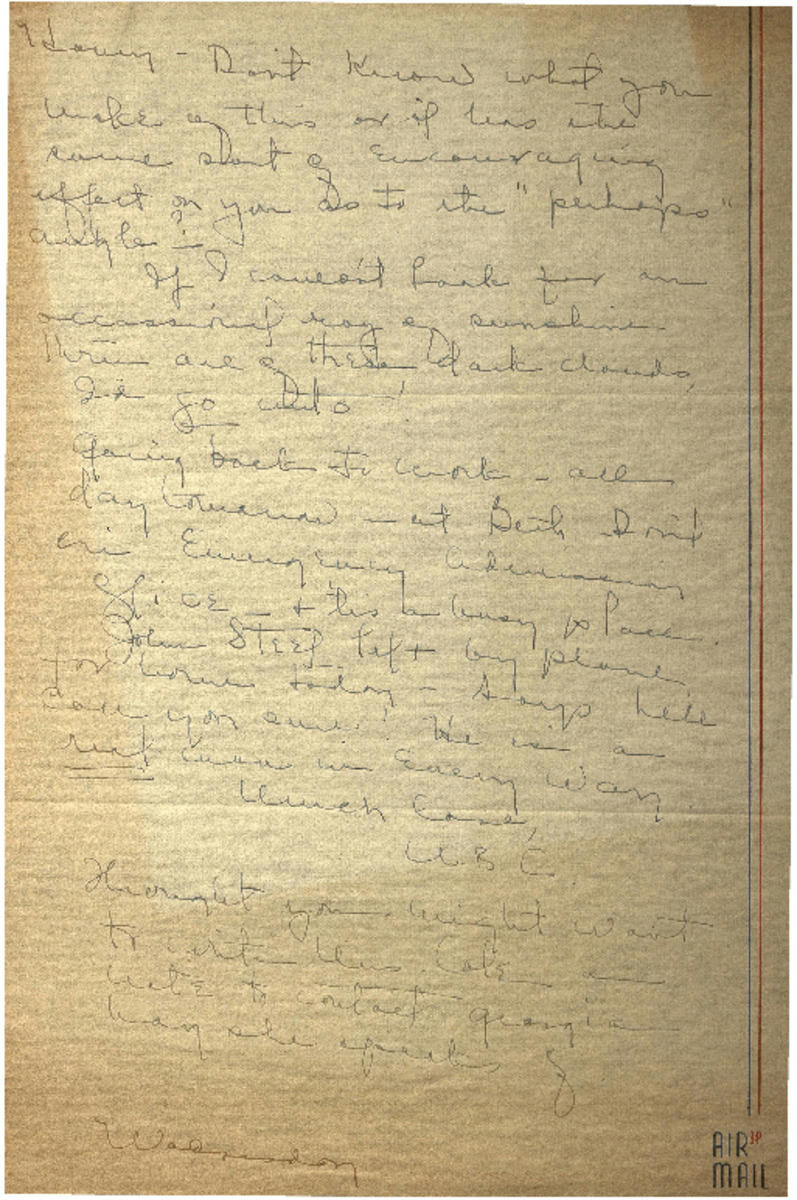 Honey - Don't Know what you
make of this or if has the
same sort of Encouraging
effect on you as to the "perhaps"
angle?
If I couldn't look for an
occasional ray of sunshine
thru all of these dark clouds,
I'd go
Going back to work - all
day tomorrow - at Beth
in Emergency Admission
Office - + tis a busy place.
John Steel left by plane
for home today - Says he'll
call you sure! He is a
man in Every Way.
Much Love,
Thought you might want
to write Mrs. Cole a
note to contact Georgia
she speaks of
Wednesday
AIR MAIL